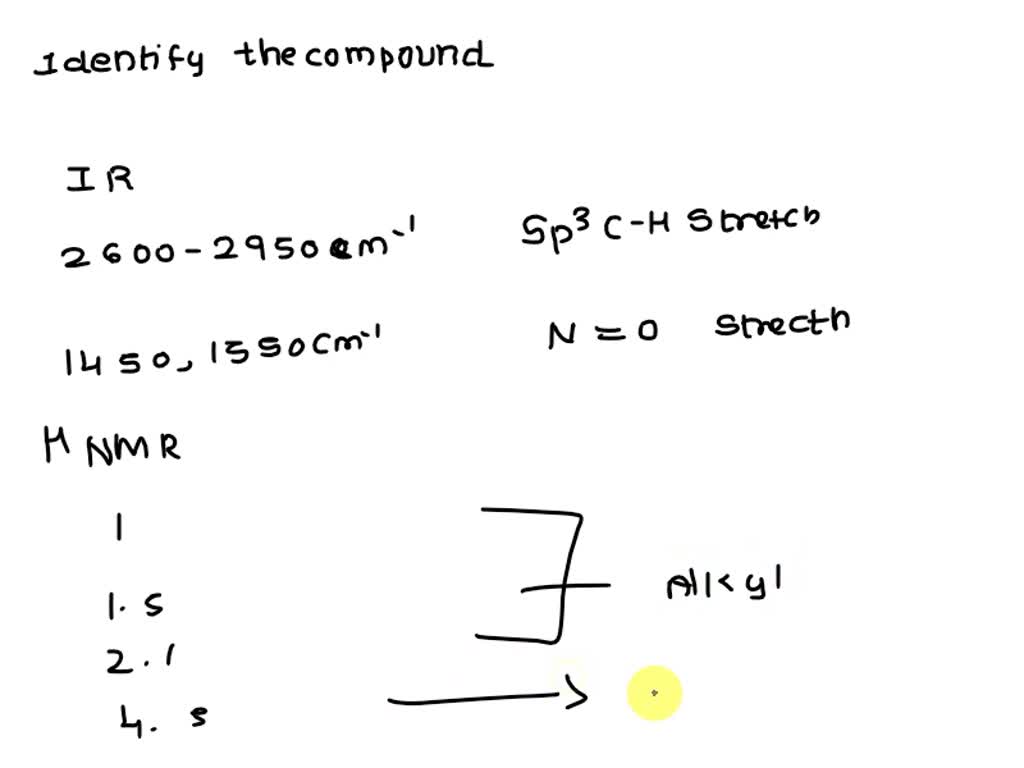 Identify the compound
IR
2600-2950cm-1 Sp3 C-H Stretch
1450, 1550cm-1 N=O Strecth
H NMR
1
1.5
2.1
4.5
Alkyl